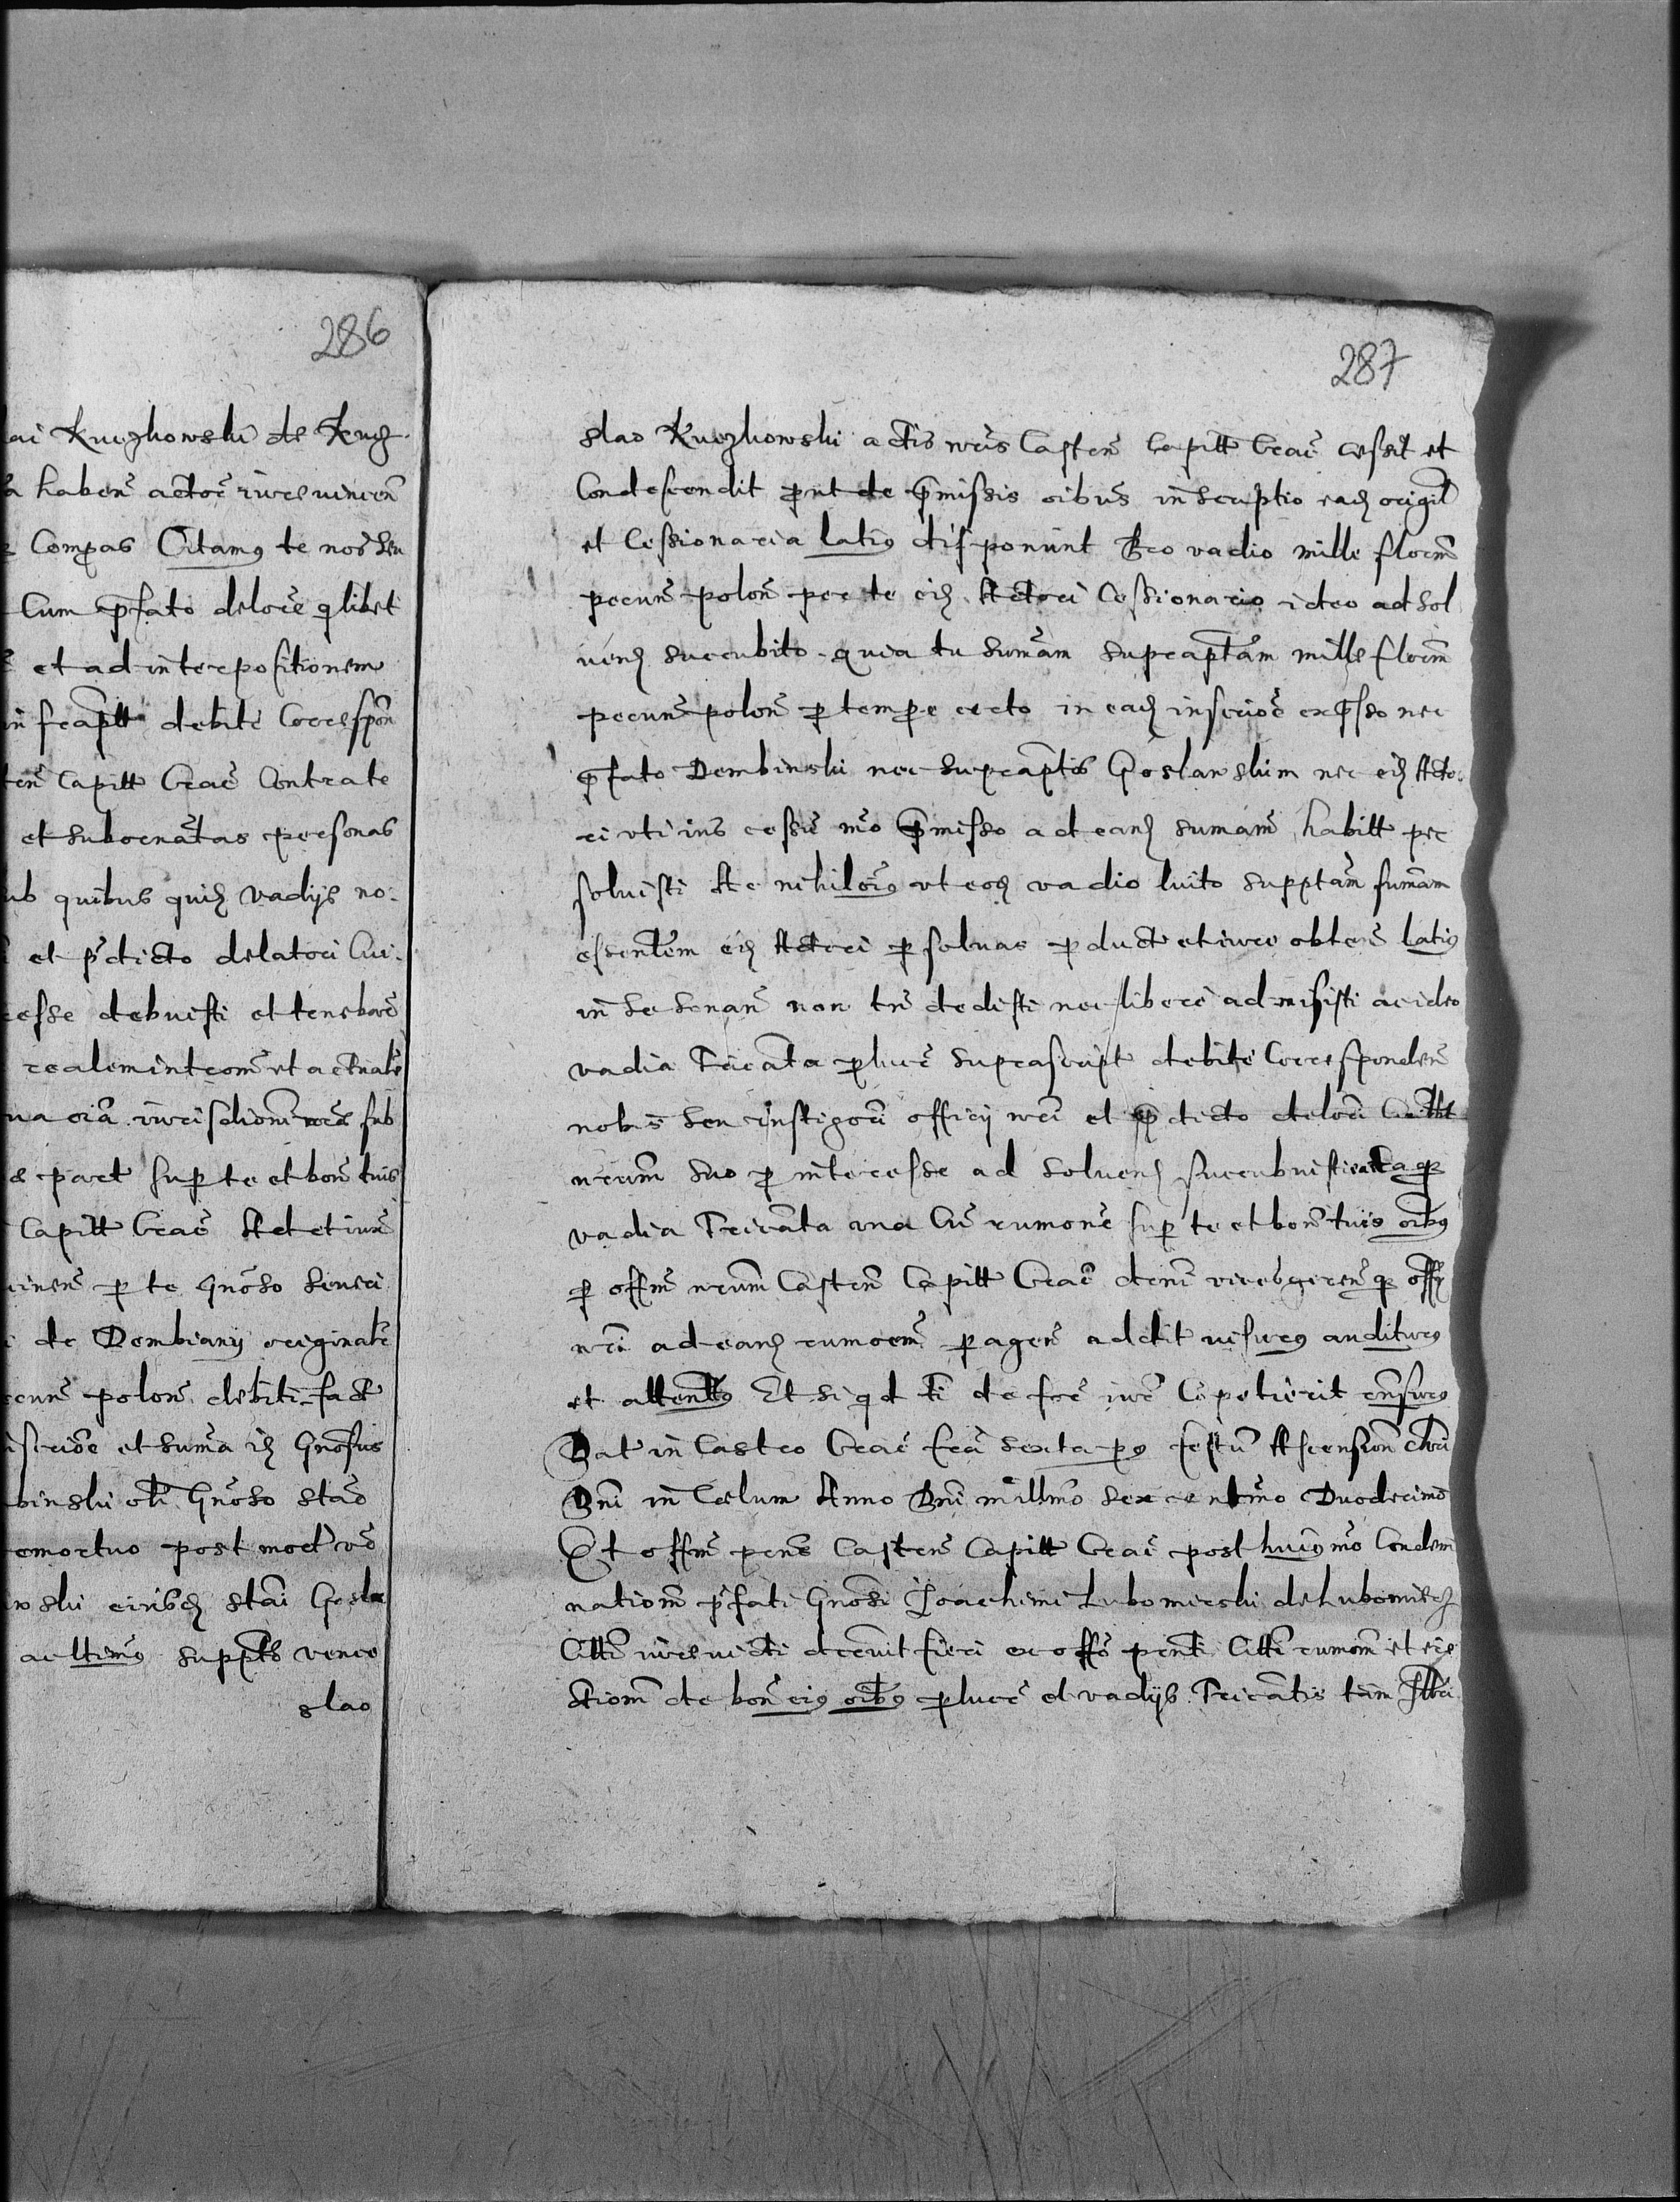 286
ai Kuczkowski de Kucz
a haben actore iurevincen
Compas Citamus te nos seu
Cum pfato delore qlibet
et ad interpositionem
infrapt debite Correspon
ten Capitt Crac Contra te
et subornatas personas
ub quibus quiz vadijs no
et pdicto delatori Avi
esse debuisti et tenebare
realem introm et actuale
na oia iurisdioni nrae sub
e part sup te et bon tuis
Capitt Crac Act et iure
inen p te Gnoso Seueri
de Dembiany originale
cun polon debiti fact
iscrioe et suma iz Gnosus
binski oli Gnoso Stao
emortuo post mort vo
wski eiusdz Stai Gosla
ac ltimus supptis vence
slao
287
slao Kuczkowski actis nris Castren Capitt Crac cessit et
Condescendit prout de pmissis oibus inscriptio eadz origil
et Cessionaria latius disponunt Pro vadio mille florm
pecun polon per te eiz Actori Cessionario ideo ad sol
uenz succubito quia tu sumam supraptam mille florm
pecun polon p tempore certo in eadz inscrioe expsso nec
pfato Dembinski nec supraptis Goslawskim nec eiz Acto
ri vti ius cessu mo pmisso ad eanz sumam habitt per
soluisti Ac nihilomus vt eodz vadio luito supptam sumam
essentem eiz Actori psoluas p duct et iure obten latius
in se sonan non tn dedisti nec libere admisisti ac ideo
vadia Tricata p lucre suprascript debite Corresponden
nobis seu instigori officij nri et pdicto delori
nrum suo p interesse ad soluenz succubuisti eaqz
vadia Tricata vna Cu rumone sup te et bon tuis oibus
p offm nrum Castren Capitt Crac deni vicesgeren qz offij
nri ad eanz rumoem pagen addit visurus auditurus
et attentus Et si qd ti de fre iure Copetierit censurus
Dat in Castro Crac fria sexta pos festu Ascension Chri
Dni in Caelum Anno Dni millmo sexcentmo Duodecimo
Et offm pens Castren Capitt Crac post huius mo Condem
nationem pfati Gnosi Joachimi Lubomirski de Lubomierz
Citti iurevicti decreuit fieri ex offo penti Citti rumom et eie
ctiom de bon eius oibus p lucre et vadijs Tricatis tam